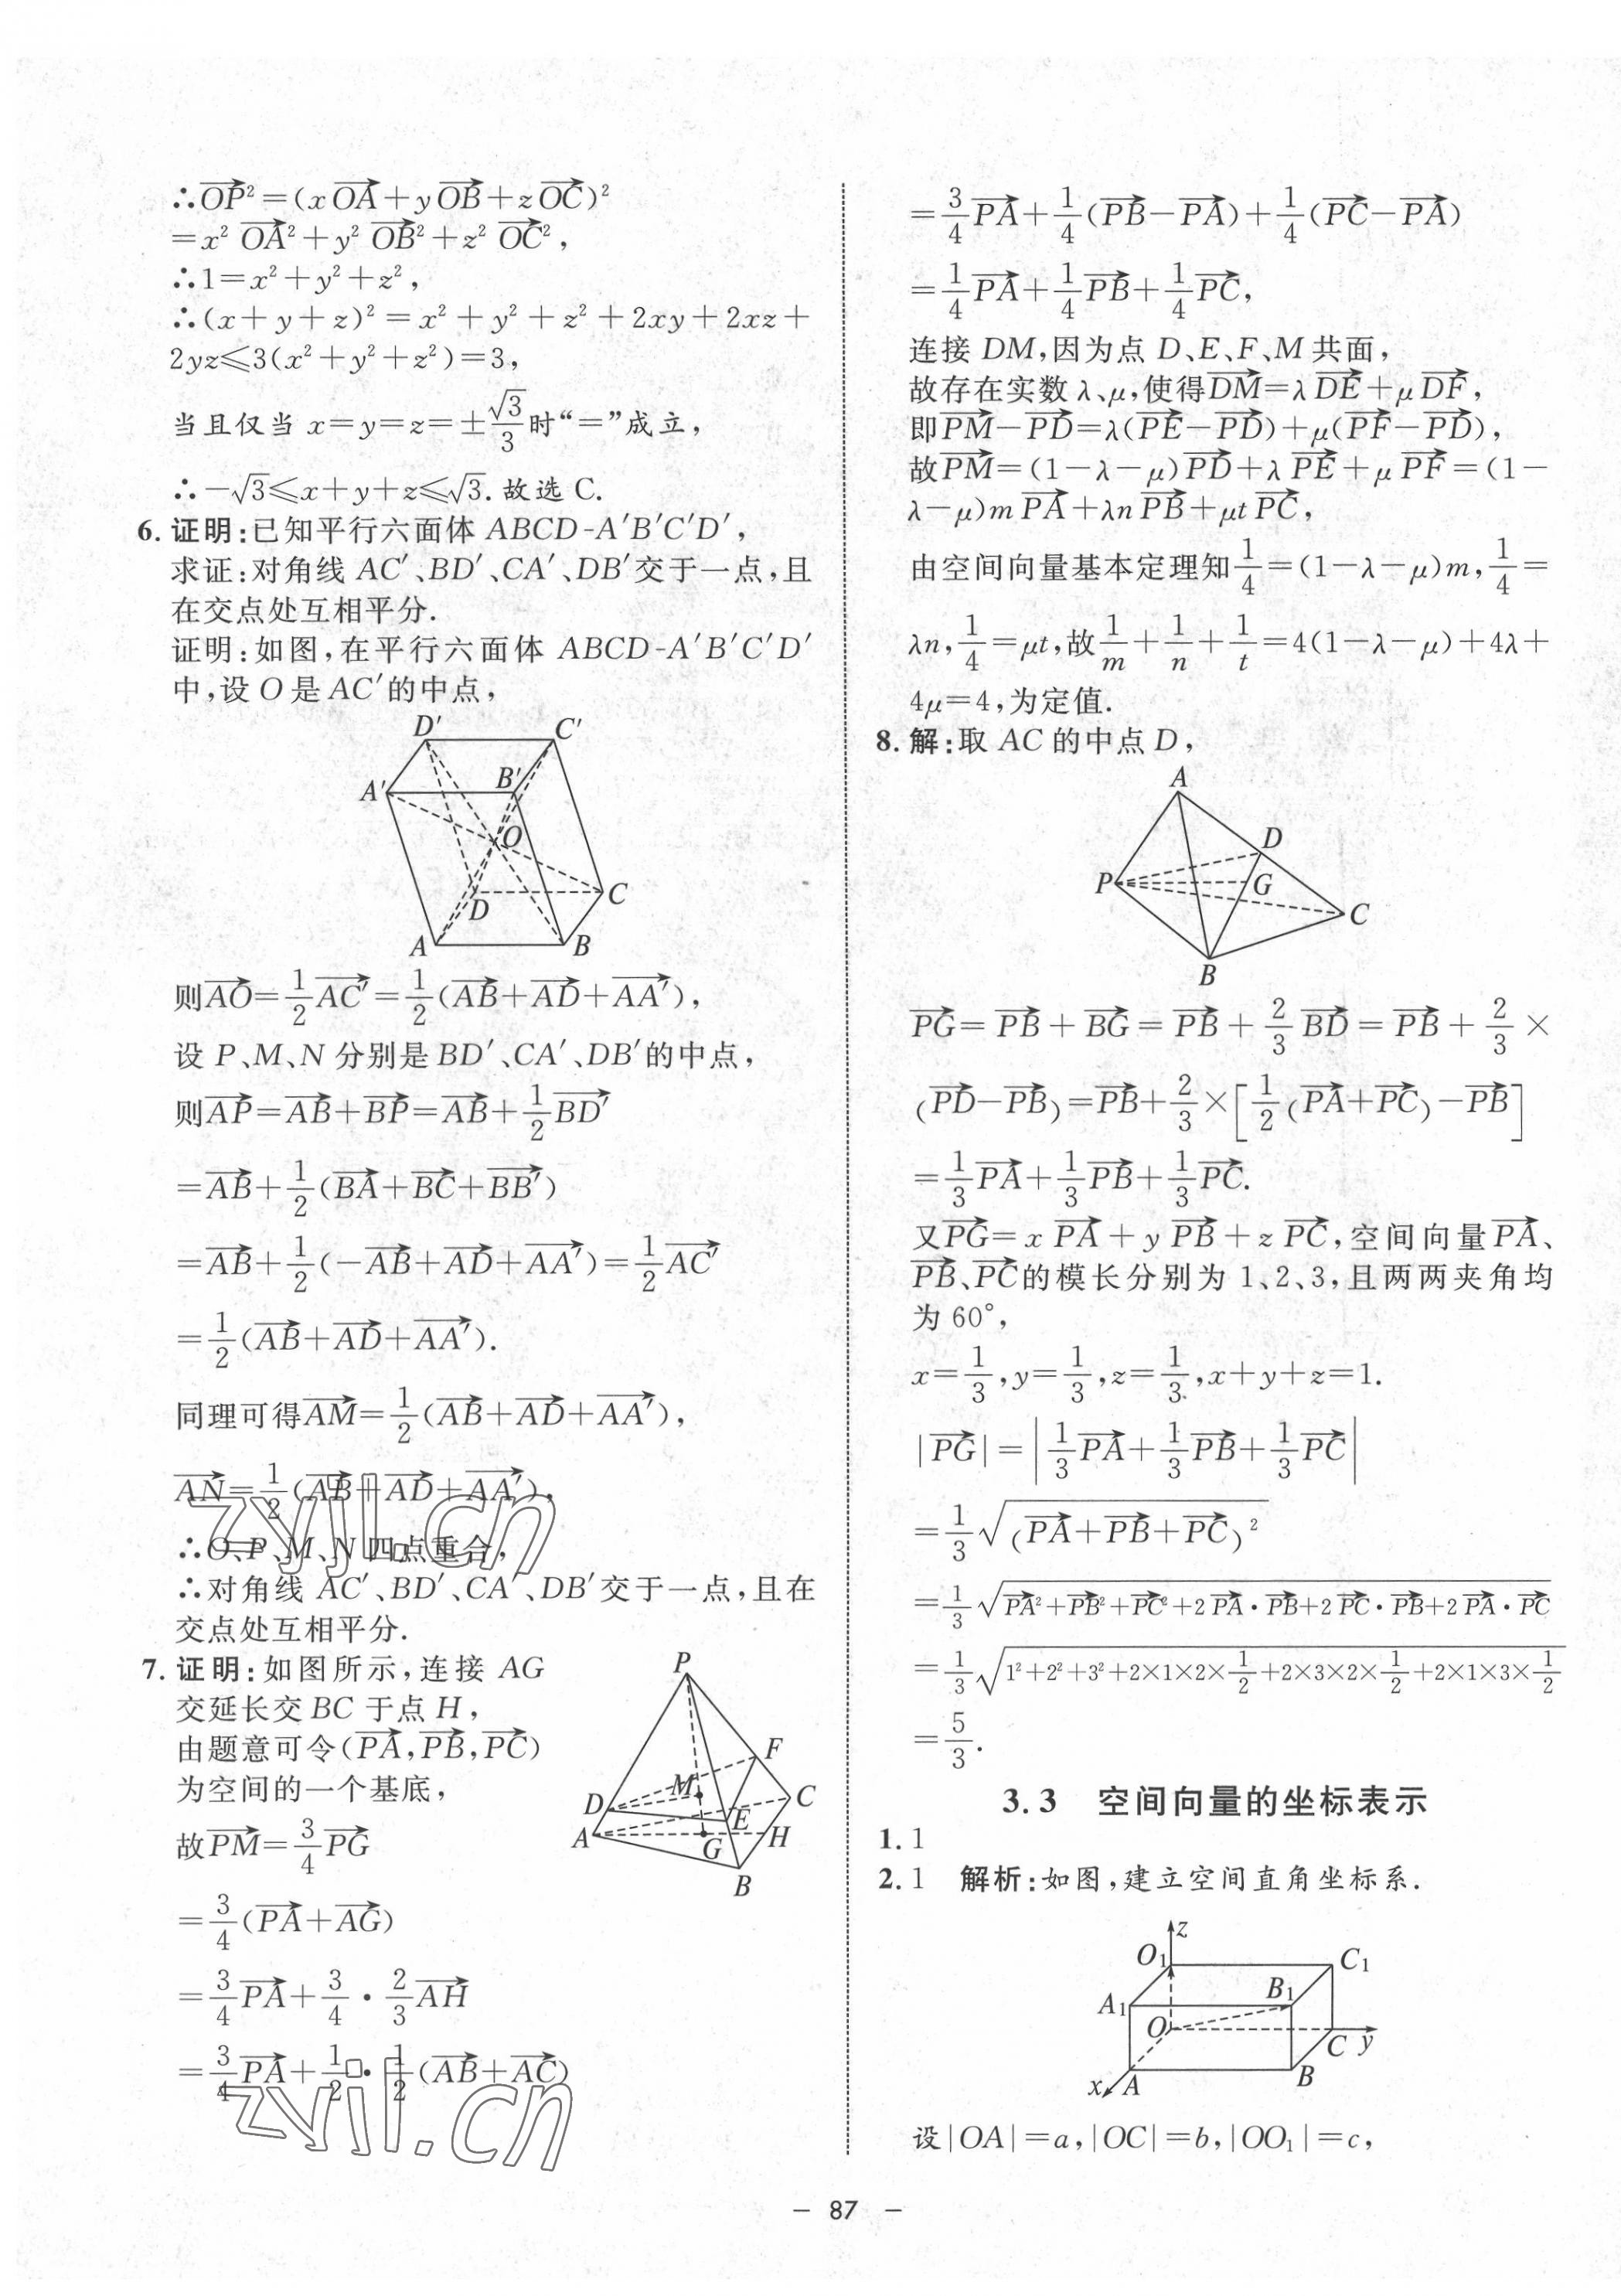 ∴$\overrightarrow{OP}^2=(x\overrightarrow{OA}+y\overrightarrow{OB}+z\overrightarrow{OC})^2$
$=x^2\overrightarrow{OA}^2+y^2\overrightarrow{OB}^2+z^2\overrightarrow{OC}^2$,
∴$1=x^2+y^2+z^2$,
∴$(x+y+z)^2=x^2+y^2+z^2+2xy+2xz+$
$2yz≤3(x^2+y^2+z^2)=3$,
当且仅当 $x=y=z=±\frac{\sqrt{3}}{3}$时“=”成立,
∴$-\sqrt{3}≤x+y+z≤\sqrt{3}$. 故选 C.
6. 证明:已知平行六面体 ABCD-A′B′C′D′,
求证:对角线 AC′、BD′、CA′、DB′交于一点,且
在交点处互相平分.
证明:如图,在平行六面体 ABCD-A′B′C′D′
中,设 O 是 AC′的中点,
D′ C′
A′ B′
O
D C
A B
则$\overrightarrow{AO}=\frac{1}{2}\overrightarrow{AC′}=\frac{1}{2}(\overrightarrow{AB}+\overrightarrow{AD}+\overrightarrow{AA′})$,
设 P、M、N 分别是 BD′、CA′、DB′的中点,
则$\overrightarrow{AP}=\overrightarrow{AB}+\overrightarrow{BP}=\overrightarrow{AB}+\frac{1}{2}\overrightarrow{BD′}$
$=\overrightarrow{AB}+\frac{1}{2}(\overrightarrow{BA}+\overrightarrow{BC}+\overrightarrow{BB′})$
$=\overrightarrow{AB}+\frac{1}{2}(-\overrightarrow{AB}+\overrightarrow{AD}+\overrightarrow{AA′})=\frac{1}{2}\overrightarrow{AC′}$
$=\frac{1}{2}(\overrightarrow{AB}+\overrightarrow{AD}+\overrightarrow{AA′})$.
同理可得$\overrightarrow{AM}=\frac{1}{2}(\overrightarrow{AB}+\overrightarrow{AD}+\overrightarrow{AA′})$,
$\overrightarrow{AN}=\frac{1}{2}(\overrightarrow{AB}+\overrightarrow{AD}+\overrightarrow{AA′})$,
zyjl.cn
∴O、P、M、N 四点重合,
∴对角线 AC′、BD′、CA′、DB′交于一点,且在
交点处互相平分.
7. 证明:如图所示,连接 AG
交延长交 BC 于点 H,
由题意可令$(\overrightarrow{PA},\overrightarrow{PB},\overrightarrow{PC})$
为空间的一个基底,
P
F
M
D E C
A G H
B
故$\overrightarrow{PM}=\frac{3}{4}\overrightarrow{PG}$
$=\frac{3}{4}(\overrightarrow{PA}+\overrightarrow{AG})$
$=\frac{3}{4}\overrightarrow{PA}+\frac{3}{4}·\frac{2}{3}\overrightarrow{AH}$
$=\frac{3}{4}\overrightarrow{PA}+\frac{1}{2}·\frac{1}{2}(\overrightarrow{AB}+\overrightarrow{AC})$
zyjl.cn
$=\frac{3}{4}\overrightarrow{PA}+\frac{1}{4}(\overrightarrow{PB}-\overrightarrow{PA})+\frac{1}{4}(\overrightarrow{PC}-\overrightarrow{PA})$
$=\frac{1}{4}\overrightarrow{PA}+\frac{1}{4}\overrightarrow{PB}+\frac{1}{4}\overrightarrow{PC}$,
连接 DM,因为点 D、E、F、M 共面,
故存在实数 λ、μ,使得$\overrightarrow{DM}=λ\overrightarrow{DE}+μ\overrightarrow{DF}$,
即$\overrightarrow{PM}-\overrightarrow{PD}=λ(\overrightarrow{PE}-\overrightarrow{PD})+μ(\overrightarrow{PF}-\overrightarrow{PD})$,
故$\overrightarrow{PM}=(1-λ-μ)\overrightarrow{PD}+λ\overrightarrow{PE}+μ\overrightarrow{PF}=(1-$
$λ-μ)m\overrightarrow{PA}+λn\overrightarrow{PB}+μt\overrightarrow{PC}$,
由空间向量基本定理知$\frac{1}{4}=(1-λ-μ)m,\frac{1}{4}=$
$λn,\frac{1}{4}=μt$,故$\frac{1}{m}+\frac{1}{n}+\frac{1}{t}=4(1-λ-μ)+4λ+$
$4μ=4$,为定值.
8. 解:取 AC 的中点 D,
A
D
P G
C
B
$\overrightarrow{PG}=\overrightarrow{PB}+\overrightarrow{BG}=\overrightarrow{PB}+\frac{2}{3}\overrightarrow{BD}=\overrightarrow{PB}+\frac{2}{3}×$
$(\overrightarrow{PD}-\overrightarrow{PB})=\overrightarrow{PB}+\frac{2}{3}×[\frac{1}{2}(\overrightarrow{PA}+\overrightarrow{PC})-\overrightarrow{PB}]$
$=\frac{1}{3}\overrightarrow{PA}+\frac{1}{3}\overrightarrow{PB}+\frac{1}{3}\overrightarrow{PC}$.
又$\overrightarrow{PG}=x\overrightarrow{PA}+y\overrightarrow{PB}+z\overrightarrow{PC}$,空间向量$\overrightarrow{PA}$、
$\overrightarrow{PB}$、$\overrightarrow{PC}$的模长分别为 1、2、3,且两两夹角均
为 60°,
$x=\frac{1}{3},y=\frac{1}{3},z=\frac{1}{3},x+y+z=1$.
$|\overrightarrow{PG}|=|\frac{1}{3}\overrightarrow{PA}+\frac{1}{3}\overrightarrow{PB}+\frac{1}{3}\overrightarrow{PC}|$
$=\frac{1}{3}\sqrt{(\overrightarrow{PA}+\overrightarrow{PB}+\overrightarrow{PC})^2}$
$=\frac{1}{3}\sqrt{\overrightarrow{PA}^2+\overrightarrow{PB}^2+\overrightarrow{PC}^2+2\overrightarrow{PA}·\overrightarrow{PB}+2\overrightarrow{PC}·\overrightarrow{PB}+2\overrightarrow{PA}·\overrightarrow{PC}}$
$=\frac{1}{3}\sqrt{1^2+2^2+3^2+2×1×2×\frac{1}{2}+2×3×2×\frac{1}{2}+2×1×3×\frac{1}{2}}$
$=\frac{5}{3}$.
3.3 空间向量的坐标表示
1. 1
2. 1 解析:如图,建立空间直角坐标系.
z
O₁ C₁
A₁ B₁
O C y
x A B
设|OA|=a,|OC|=b,|OO₁|=c,
— 87 —